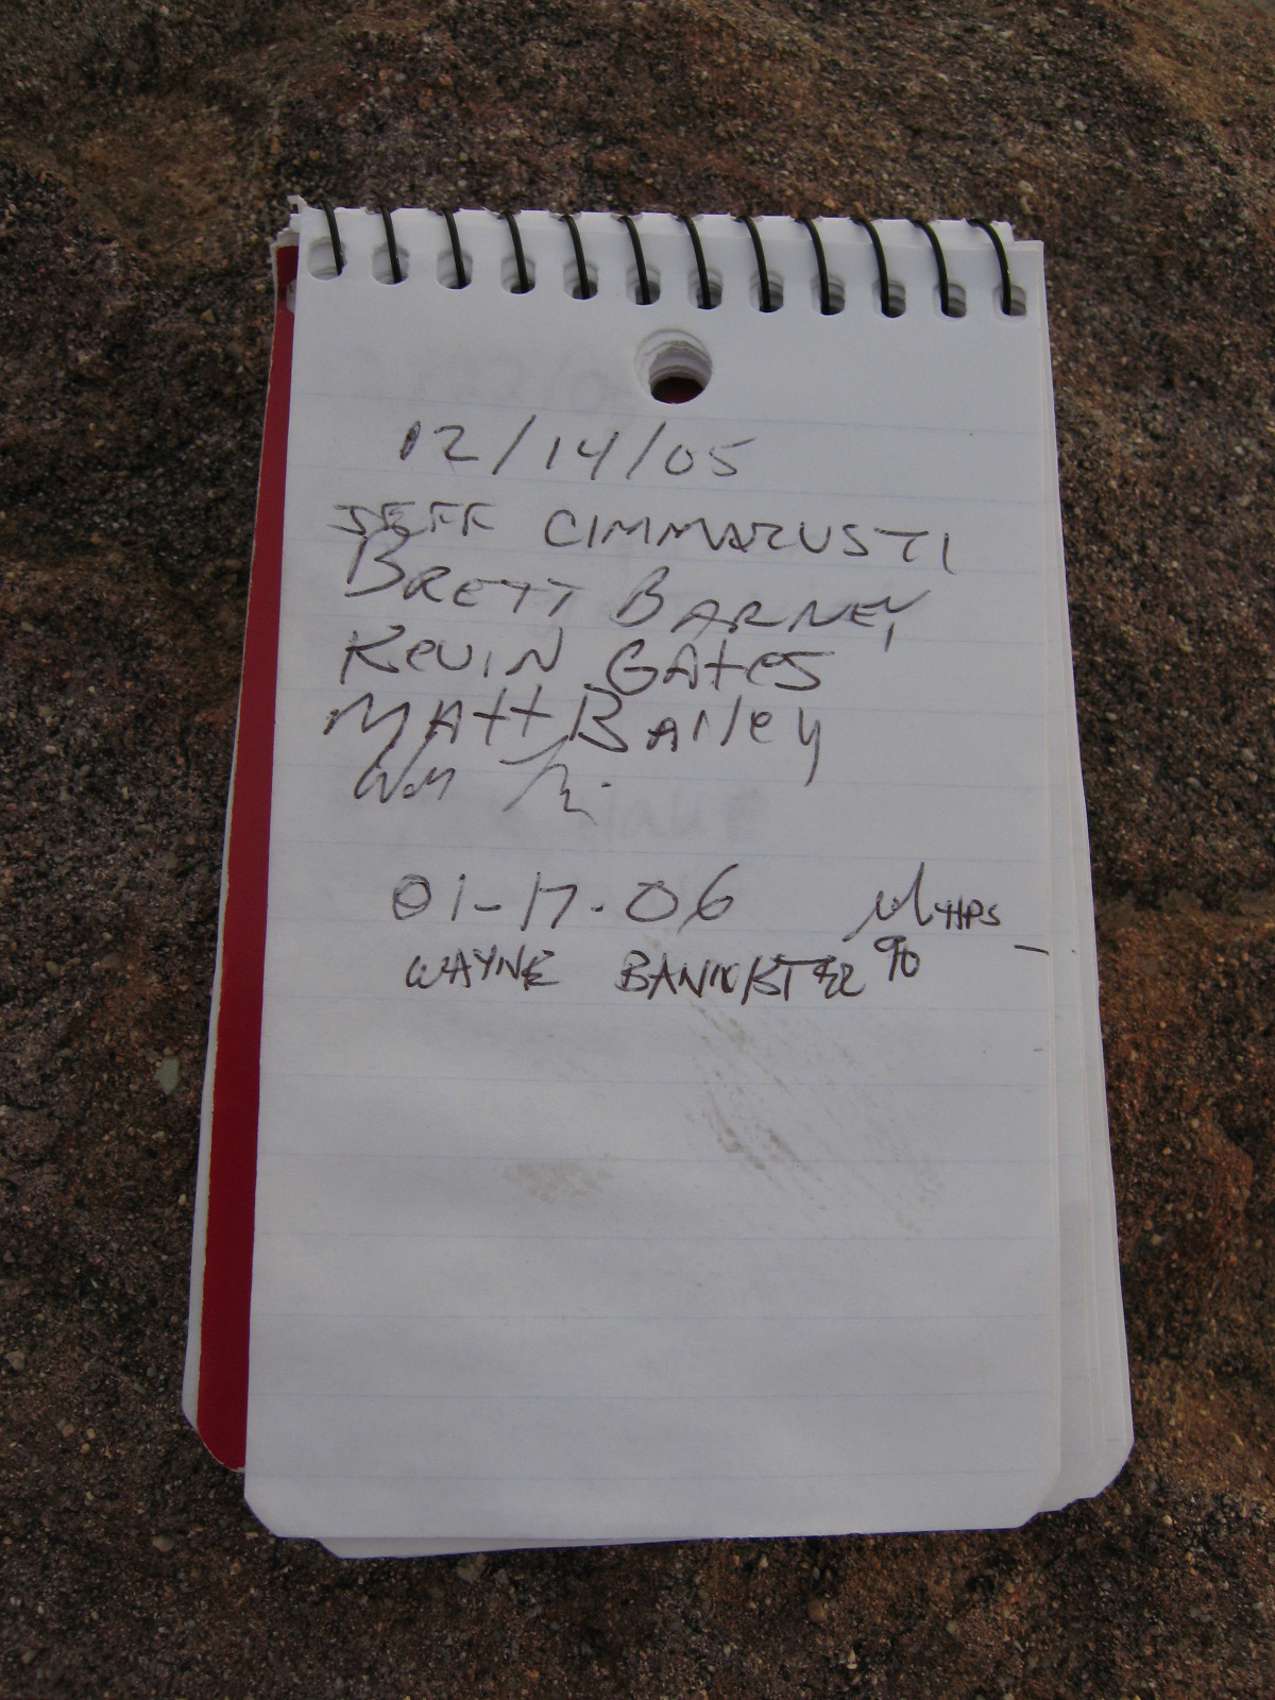 12/14/05
JEFF CIMMARUSTI
BRETT BARNEY
KEVIN GAtes
MAtt BAIley
01-17-06
WAYNE BANNISTER 90